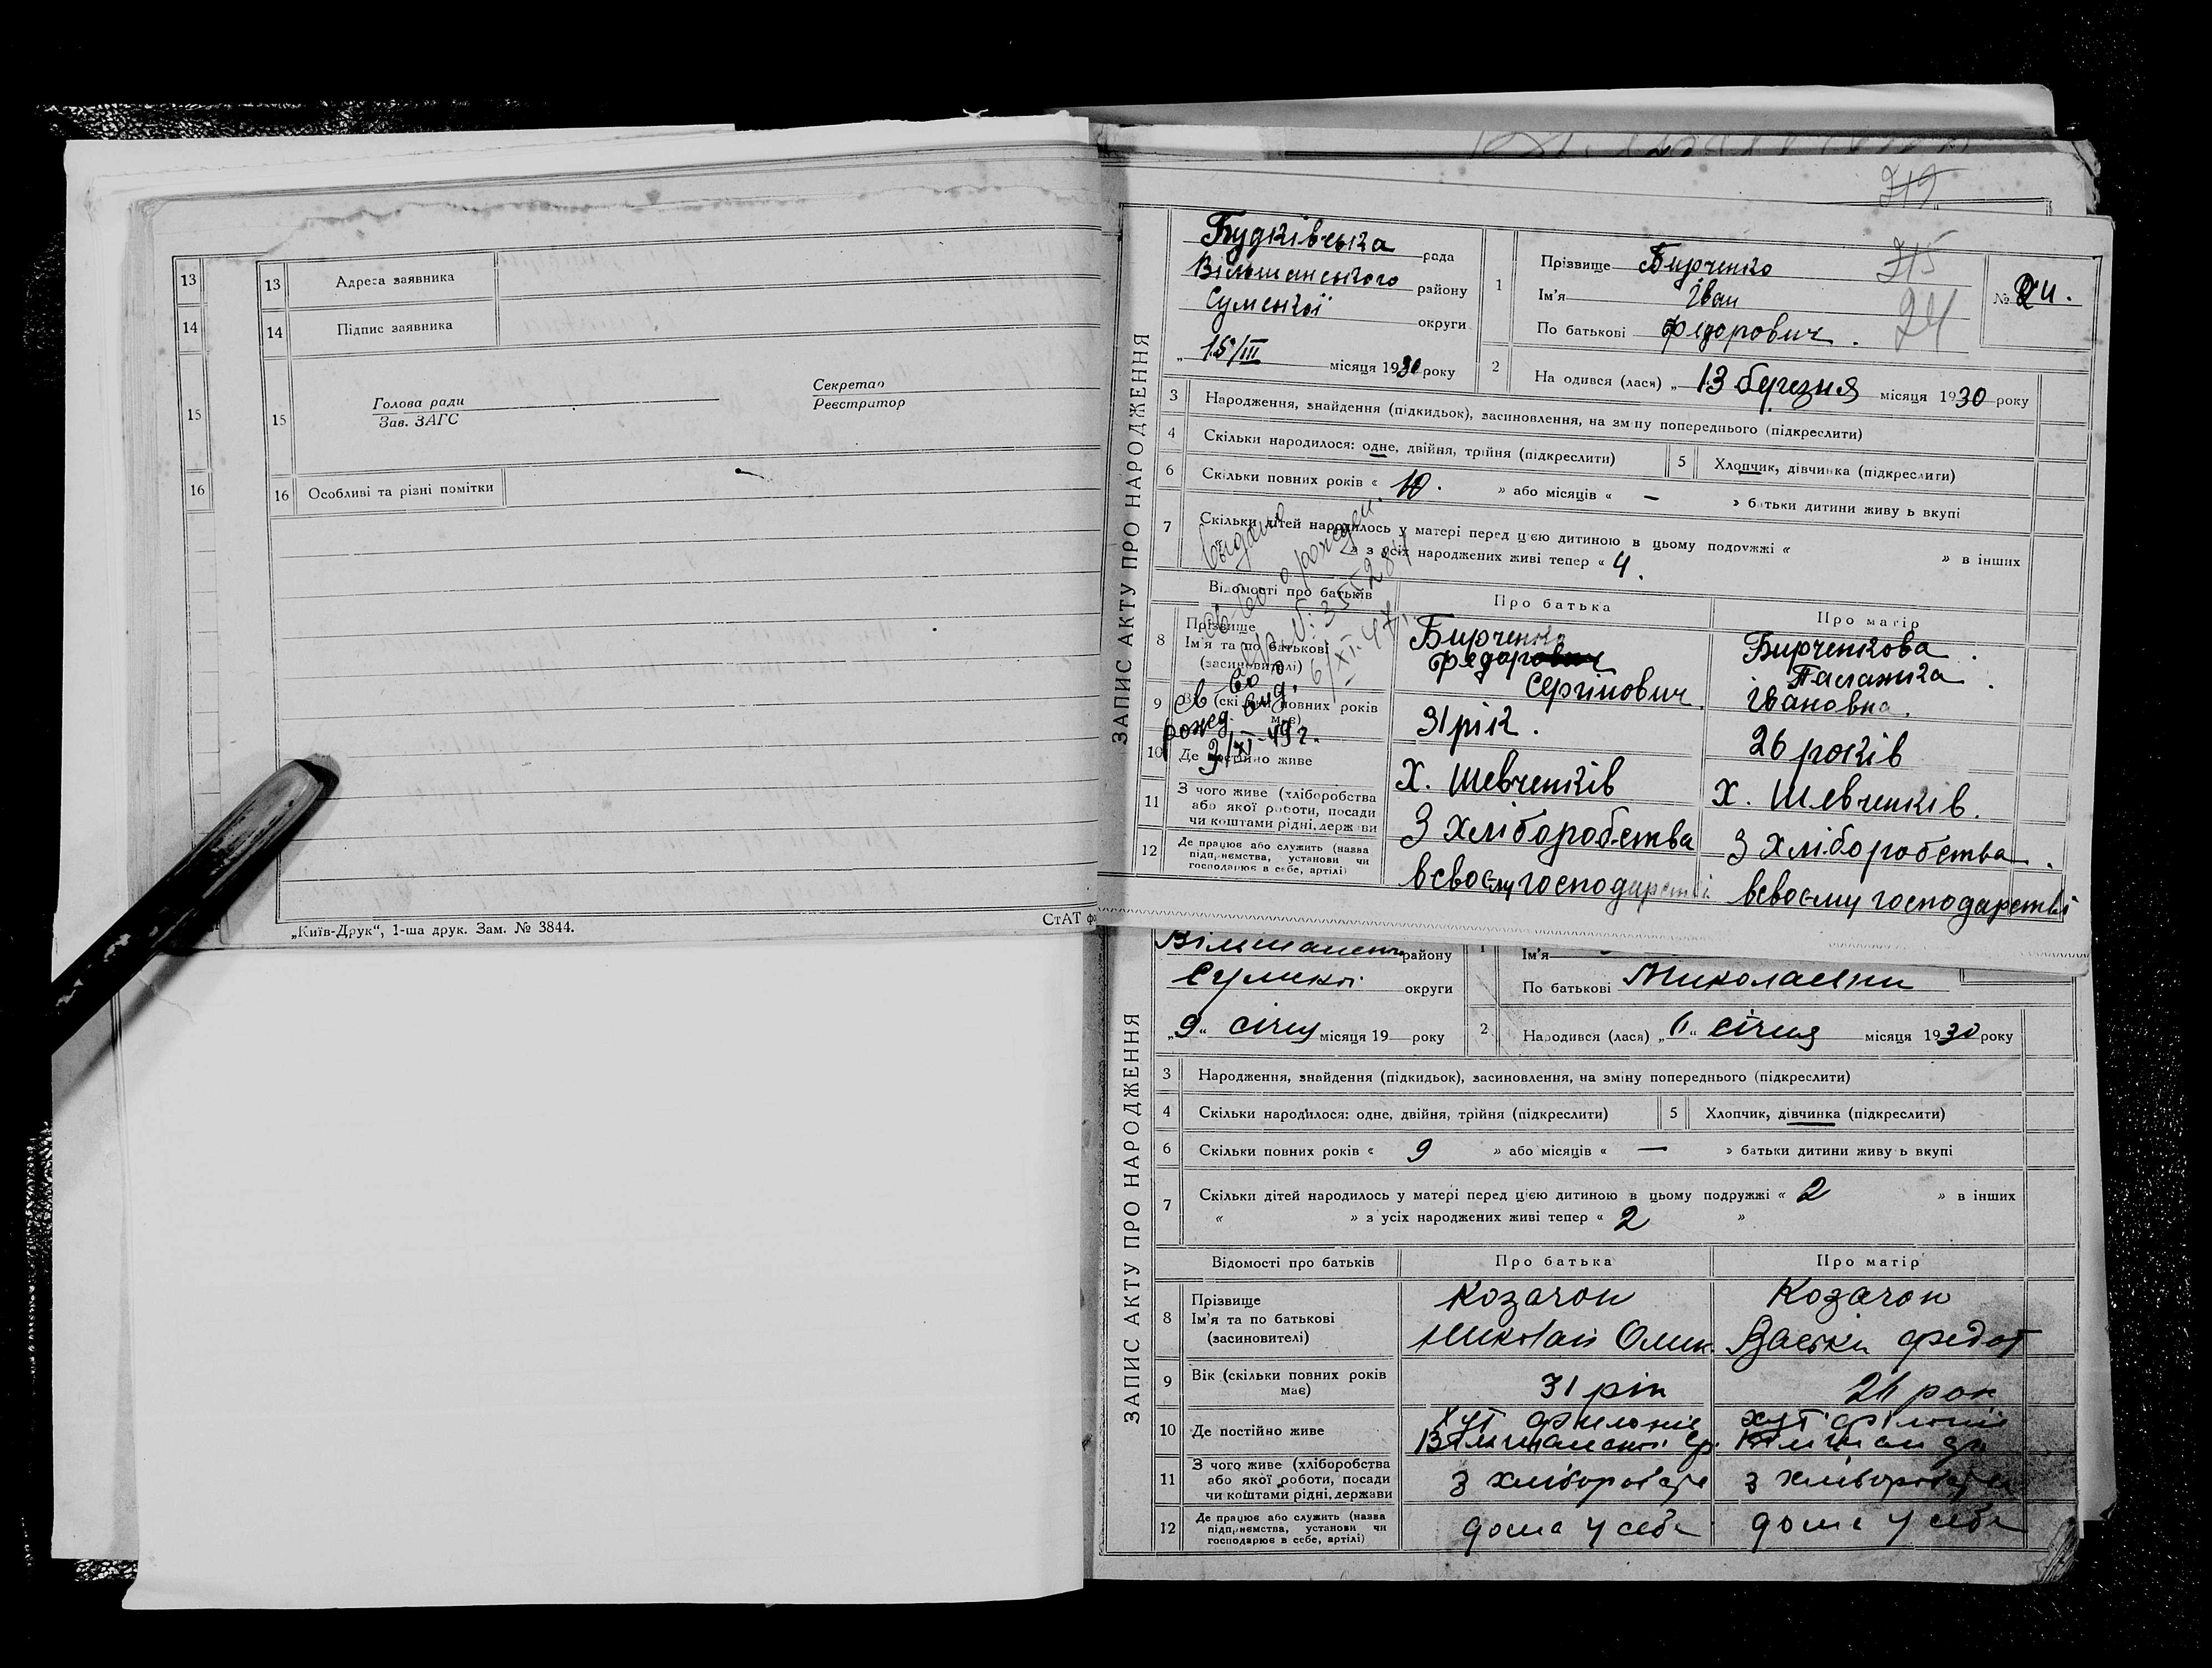 13
14
15
16
13 Адреса заявника
14 Підпис заявника
15 Голова ради
Зав. ЗАГС
Секретар
Реєстратор
16 Особливі та різні помітки
„Київ-Друк“, 1-ша друк. Зам. № 3844.
СтАТ
719
ЗАПИС АКТУ ПРО НАРОДЖЕННЯ
Будківська рада
Вільшанського району
Сумської округи
„15/III місяця 1930 року
1 Прізвище Бирченко
Ім'я Іван
По батькові Федорович.
715
24
№ 24.
2 На одився (лася) „13 березня місяця 1930 року
3 Народження, знайдення (підкидьок), засиновлення, на зміну попереднього (підкреслити)
4 Скільки народилося: одне, двійня, трійня (підкреслити) 5 Хлопчик, дівчинка (підкреслити)
6 Скільки повних років « 10. » або місяців « — » батьки дитини живу ь вкупі
7 Скільки дітей народилось у матері перед цією дитиною в цьому подружжі « » в інших
» з усіх народжених живі тепер « 4.
видано
св-во о рожден.
№ 355284
6/XI-47
Відомості про батьків Про батька Про матір
8 Прізвище
Ім'я та по батькові
(засиновителі)
Бирченко
Федор
Сергійович.
Бирченкова.
Паланика.
Івановна.
св-во о
рожд. выд.
3/XI-49 г.
9 Вік (скільки повних років
має)
31 рік.
26 років
10 Де постійно живе
Х. Шевченків
Х. Шевченків.
11 З чого живе (хліборобства
або якої роботи, посади
чи коштами рідні, держави
З хліборобства
З хліборобства.
12 Де працює або служить (назва
підприємства, установи чи
господарює в себе, артілі)
всвоєму господарстві
всвоєму господарстві
ЗАПИС АКТУ ПРО НАРОДЖЕННЯ
району
Сумскої округи
„9“ січня місяця 19 року
1 Ім'я
По батькові Миколаєвни
2 Народився (лася) „ “ січня місяця 1930 року
3 Народження, знайдення (підкидьок), засиновлення, на зміну попереднього (підкреслити)
4 Скільки народилося: одне, двійня, трійня (підкреслити) 5 Хлопчик, дівчинка (підкреслити)
6 Скільки повних років « 9 » або місяців « — » батьки дитини живу ь вкупі
7 Скільки дітей народилось у матері перед цією дитиною в цьому подружжі « 2 » в інших
« » з усіх народжених живі тепер « 2 »
Відомості про батьків Про батька Про матір
8 Прізвище
Ім'я та по батькові
(засиновителі)
Козачок
Николай Омик.
Козачок
Федот
9 Вік (скільки повних років
має)
31 рік
26 рок
10 Де постійно живе
хут
хут
11 З чого живе (хліборобства
або якої роботи, посади
чи коштами рідні, держави
з хліборобств
з хліборобств
12 Де працює або служить (назва
підприємства, установи чи
господарює в себе, артілі)
дома у себе
дома у себе